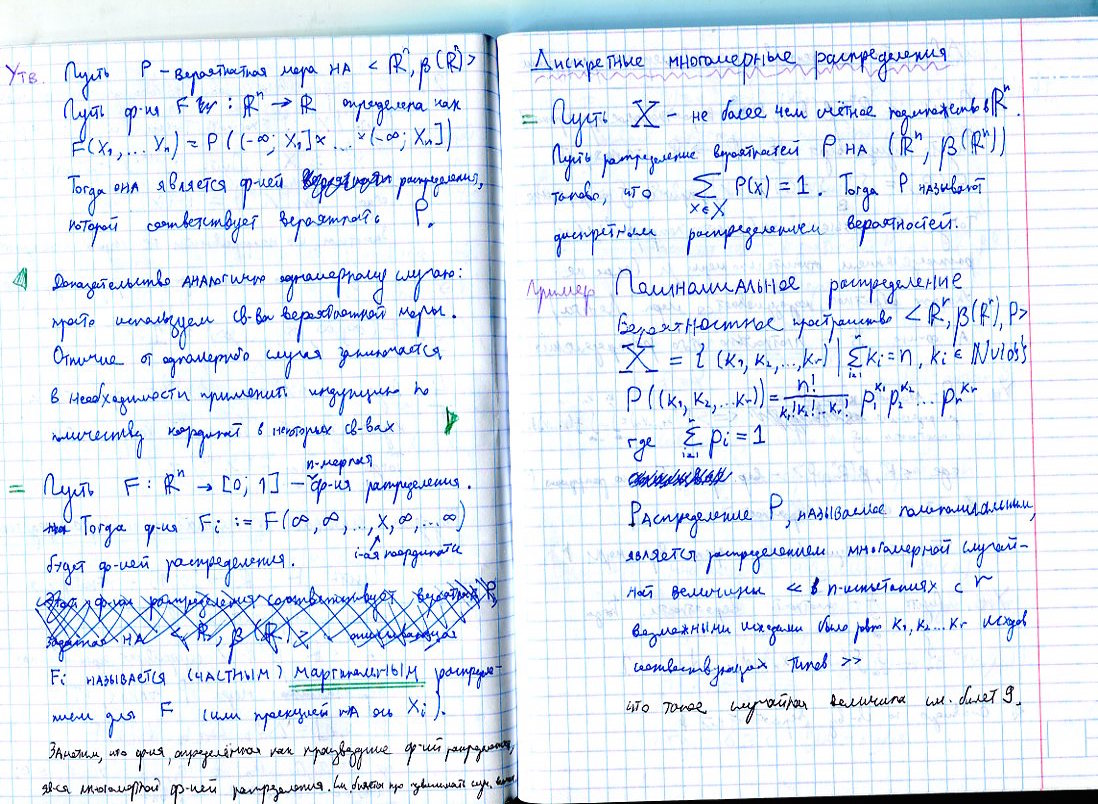 Утв. Пусть P - вероятностная мера на < ℝⁿ, β(ℝⁿ) >
Пусть ф-ия F : ℝⁿ → ℝ определена как
F(x₁, ... xₙ) = P((-∞; x₁] × ... × (-∞; xₙ])
Тогда она является ф-ией распределения,
которой соответствует вероятность P.
Доказательство аналогично одномерному случаю:
просто используем св-ва вероятностной меры.
Отличие от одномерного случая заключается
в необходимости применить индукцию по
количеству координат в некоторых св-вах
n-мерная
= Пусть F : ℝⁿ → [0; 1] - ф-ия распределения.
Тогда ф-ия Fᵢ := F(∞, ∞, ..., x, ∞, ... ∞)
i-ая координата
будет ф-ией распределения.
Этой ф-ии распределения соответствует
заданная на < ℝ, β(ℝ) >
Fᵢ называется (частным) маргинальным распреде-
нием для F (или проекцией на ось Xᵢ).
Заметим, что ф-ия, определённая как произведение ф-ий распределения,
явл-ся многомерной ф-ией распределения. См билеты про
Дискретные многомерные распределения
= Пусть X - не более чем счётное подмножество в ℝⁿ.
Пусть распределение вероятностей P на (ℝⁿ, β(ℝⁿ))
таково, что ∑ x∈X P(x) = 1. Тогда P называют
дискретным распределением вероятностей.
Пример Полиномиальное распределение
Вероятностное пространство < ℝʳ, β(ℝʳ), P >
X = { (k₁, k₂, ..., kᵣ) | ∑ᵢ₌₁ʳ kᵢ = n, kᵢ ∈ ℕ∪{0}}
P((k₁, k₂, ... kᵣ)) = n!/(k₁! k₂! ... kᵣ!) p₁^k₁ p₂^k₂ ... pᵣ^kᵣ
где ∑ᵢ₌₁ʳ pᵢ = 1
Распределение P, называемое полиномиальным,
является распределением многомерной случай-
ной величины « в n-испытаниях с r
возможными исходами было ровно k₁, k₂ ... kᵣ исходов
соответствующих типов >>
что такое случайная величина см. билет 9.